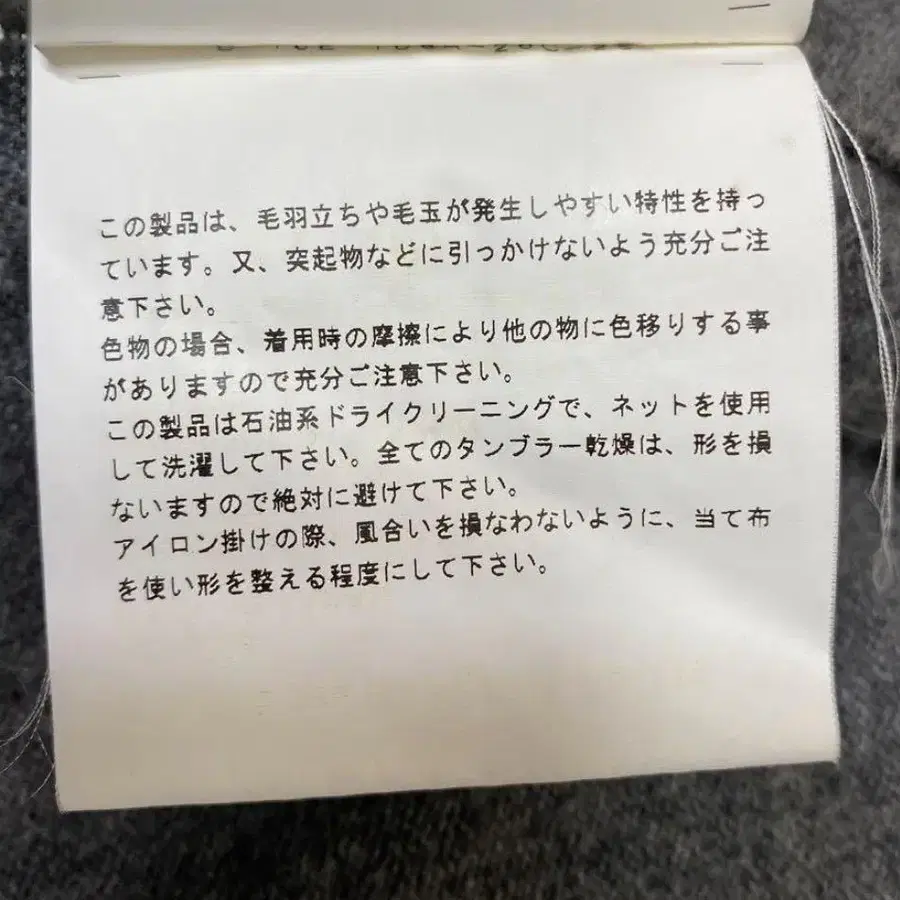 この製品は、毛羽立ちや毛玉が発生しやすい特性を持っ
ています。又、突起物などに引っかけないよう充分ご注
意下さい。
色物の場合、着用時の摩擦により他の物に色移りする事
がありますので充分ご注意下さい。
この製品は石油系ドライクリーニングで、ネットを使用
して洗濯して下さい。全てのタンブラー乾燥は、形を損
ないますので絶対に避けて下さい。
アイロン掛けの際、風合いを損なわないように、当て布
を使い形を整える程度にして下さい。